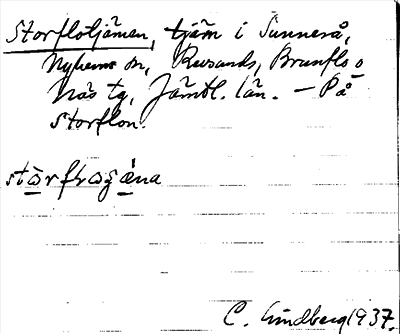 Storflotjämen, tjärn i Sunnerå,
Nyhems sn, Revsunds, Brunflo o
Näs tg, Jämtl. län. — På
Storflon.
C. Lindberg 1937.